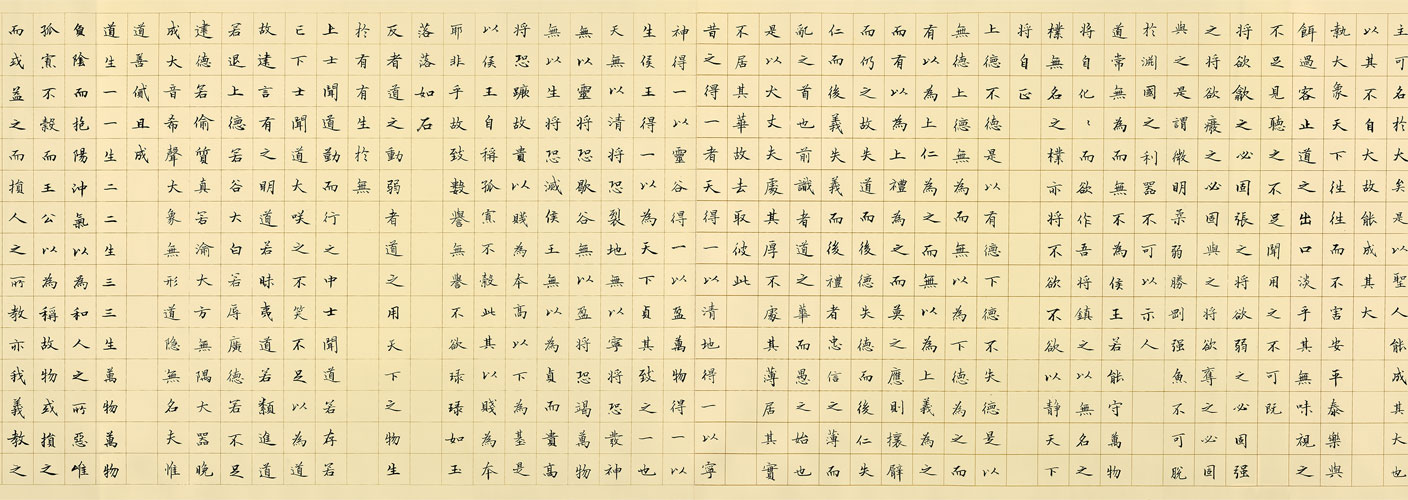 主可名於大矣是以聖人能成其大也
以其不自大故能成其大
執大象天下往往而不害安平泰樂與
餌過客止道之出口淡乎其無味視之
不足見聽之不足聞用之不可既
将欲歙之必固張之将欲弱之必固强
之将欲癈之必固與之将欲奪之必固
與之是謂微明柔弱勝剛强魚不可脱
於淵國之利器不可以示人
道常無為而無不為侯王若能守萬物
将自化〻而欲作吾将鎮之以無名之
樸無名之樸亦将不欲不欲以静天下
将自正
上德不德是以有德下德不失德是以
無德上德無為而無以為下德為之而
有以為上仁為之而無以為上義為之
而有以為上禮為之而莫之應則攘臂
而仍之故失道而後德失德而後仁失
仁而後義失義而後禮者忠信之薄而
亂之首也前識者道之華而愚之始也
是以大丈夫處其厚不處其薄居其實
不居其華故去取彼此
昔之得一者天得一以清地得一以寧
神得一以靈谷得一以盈萬物得一以
生侯王得一以為天下貞其致之一也
天無以清将恐裂地無以寧将恐發神
無以靈将恐歇谷無以盈将恐竭萬物
無以生将恐滅侯王無以為貞而貴高
将恐蹶故貴以賤為本高以下為基是
以侯王自稱孤寡不穀此其以賤為本
耶非乎故致數譽無譽不欲琭琭如玉
落落如石
反者道之動弱者道之用天下之物生
於有有生於無
上士聞道勤而行之中士聞道若存若
亡下士聞道大咲之不笑不足以為道
故建言有之明道若昧夷道若纇進道
若退上德若谷大白若辱廣德若不足
建德若偷質真若渝大方無隅大器晚
成大音希聲大象無形道隐無名夫惟
道善貸且成
道生一一生二二生三三生萬物萬物
負陰而抱陽沖氣以為和人之所惡惟
孤寡不穀而王公以為稱故物或損之
而或益之而損人之所教亦我義教之